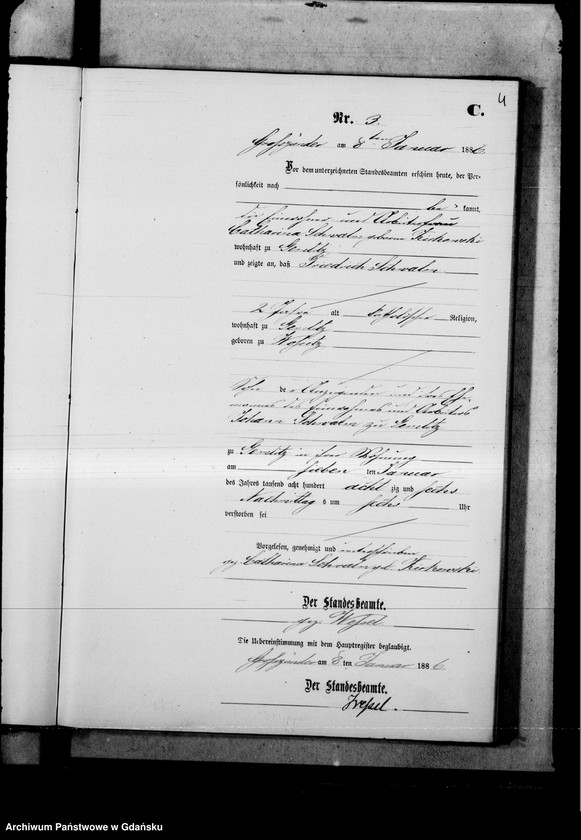 4
C.
Nr. 3.
am 8ten Januar 1886.
Vor dem unterzeichneten Standesbeamten erschien heute, der Per-
sönlichkeit nach
be kannt,
die und Arbeiterfrau
Catharina Schwalm geborne Kickowski
wohnhaft zu
und zeigte an, daß Friedrich Schwalm
2 Jahre alt katholischer Religion,
wohnhaft zu
geboren zu Wossitz
Sohn der Anzeigenden und des Ehe-
mannes des und Arbeiters
Johann Schwalm zu
zu in ihrer Wohnung
am sieben ten Januar
des Jahres tausend acht hundert acht zig und sechs
Nachmittags um sechs Uhr
verstorben sei
Vorgelesen, genehmigt und unterschrieben
gez. Catharina Schwalm geb. Kickowski
Der Standesbeamte.
gez. Wessel
Die Uebereinstimmung mit dem Hauptregister beglaubigt.
am 8 ten Januar 1886.
Der Standesbeamte.
Wessel.
Archiwum Państwowe w Gdańsku